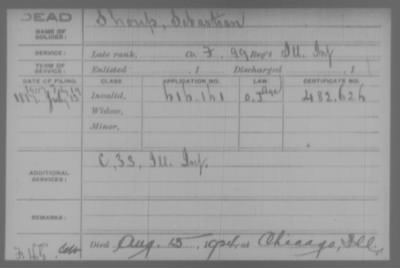 DEAD
NAME OF SOLDIER: Shoup, Sebastian
SERVICE: Late rank, Co. F. 99 Reg't Ill. Inf
TERM OF SERVICE: Enlisted , 1 Discharged , 1
DATE OF FILING. CLASS. APPLICATION NO. LAW. CERTIFICATE NO.
July 15 Invalid, 616.161 482.626
Widow,
Minor,
ADDITIONAL SERVICES: C, 33, Ill. Inf.
REMARKS:
Died Aug. 15, at Chicago, Ill.